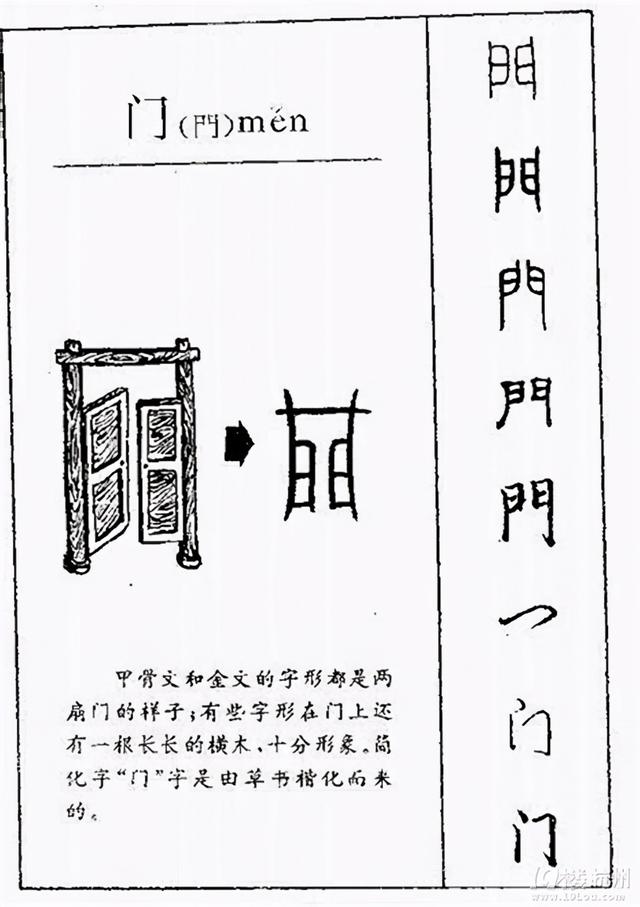 门(門)měn
甲骨文和金文的字形都是两
扇门的样子;有些字形在门上还
有一根长长的横木、十分形象。简
化字“门”字是由草书楷化而来
的。
門
門
門
門
門
门
门
楼杭州
www.19Lou.com